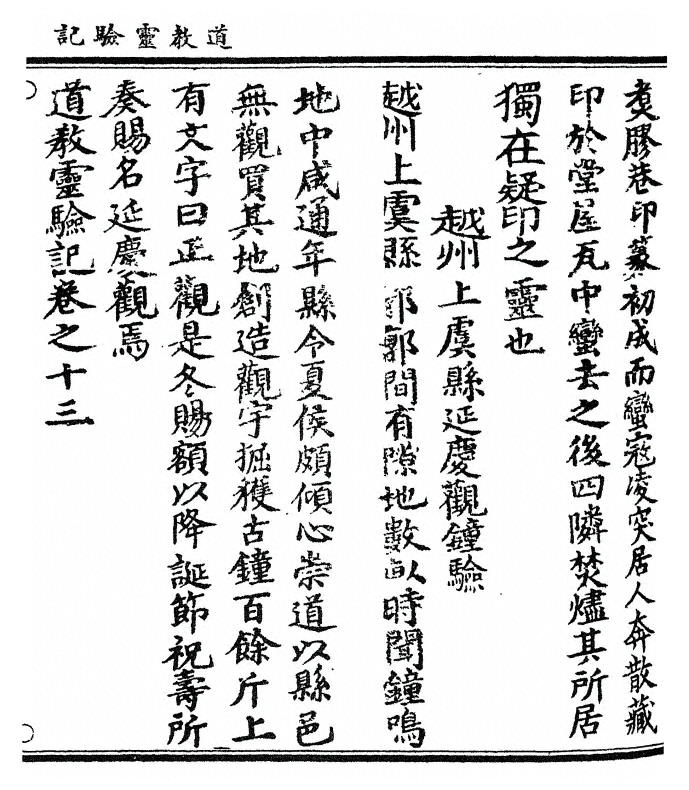 道教靈驗記
煑膠巷印篆初成而蠻寇淩突居人奔散藏
印於堂屋瓦中蠻去之後四隣焚燼其所居
獨在疑印之靈也
越州上虞縣延慶觀鐘驗
越州上虞縣郛郭間有隙地數畝時聞鐘鳴
地中咸通年縣令夏侯頗傾心崇道以縣邑
無觀買其地創造觀宇掘穫古鐘百餘斤上
有文字曰正觀是冬賜額以降誕節祝壽所
奏賜名延慶觀焉
道教靈驗記卷之十三